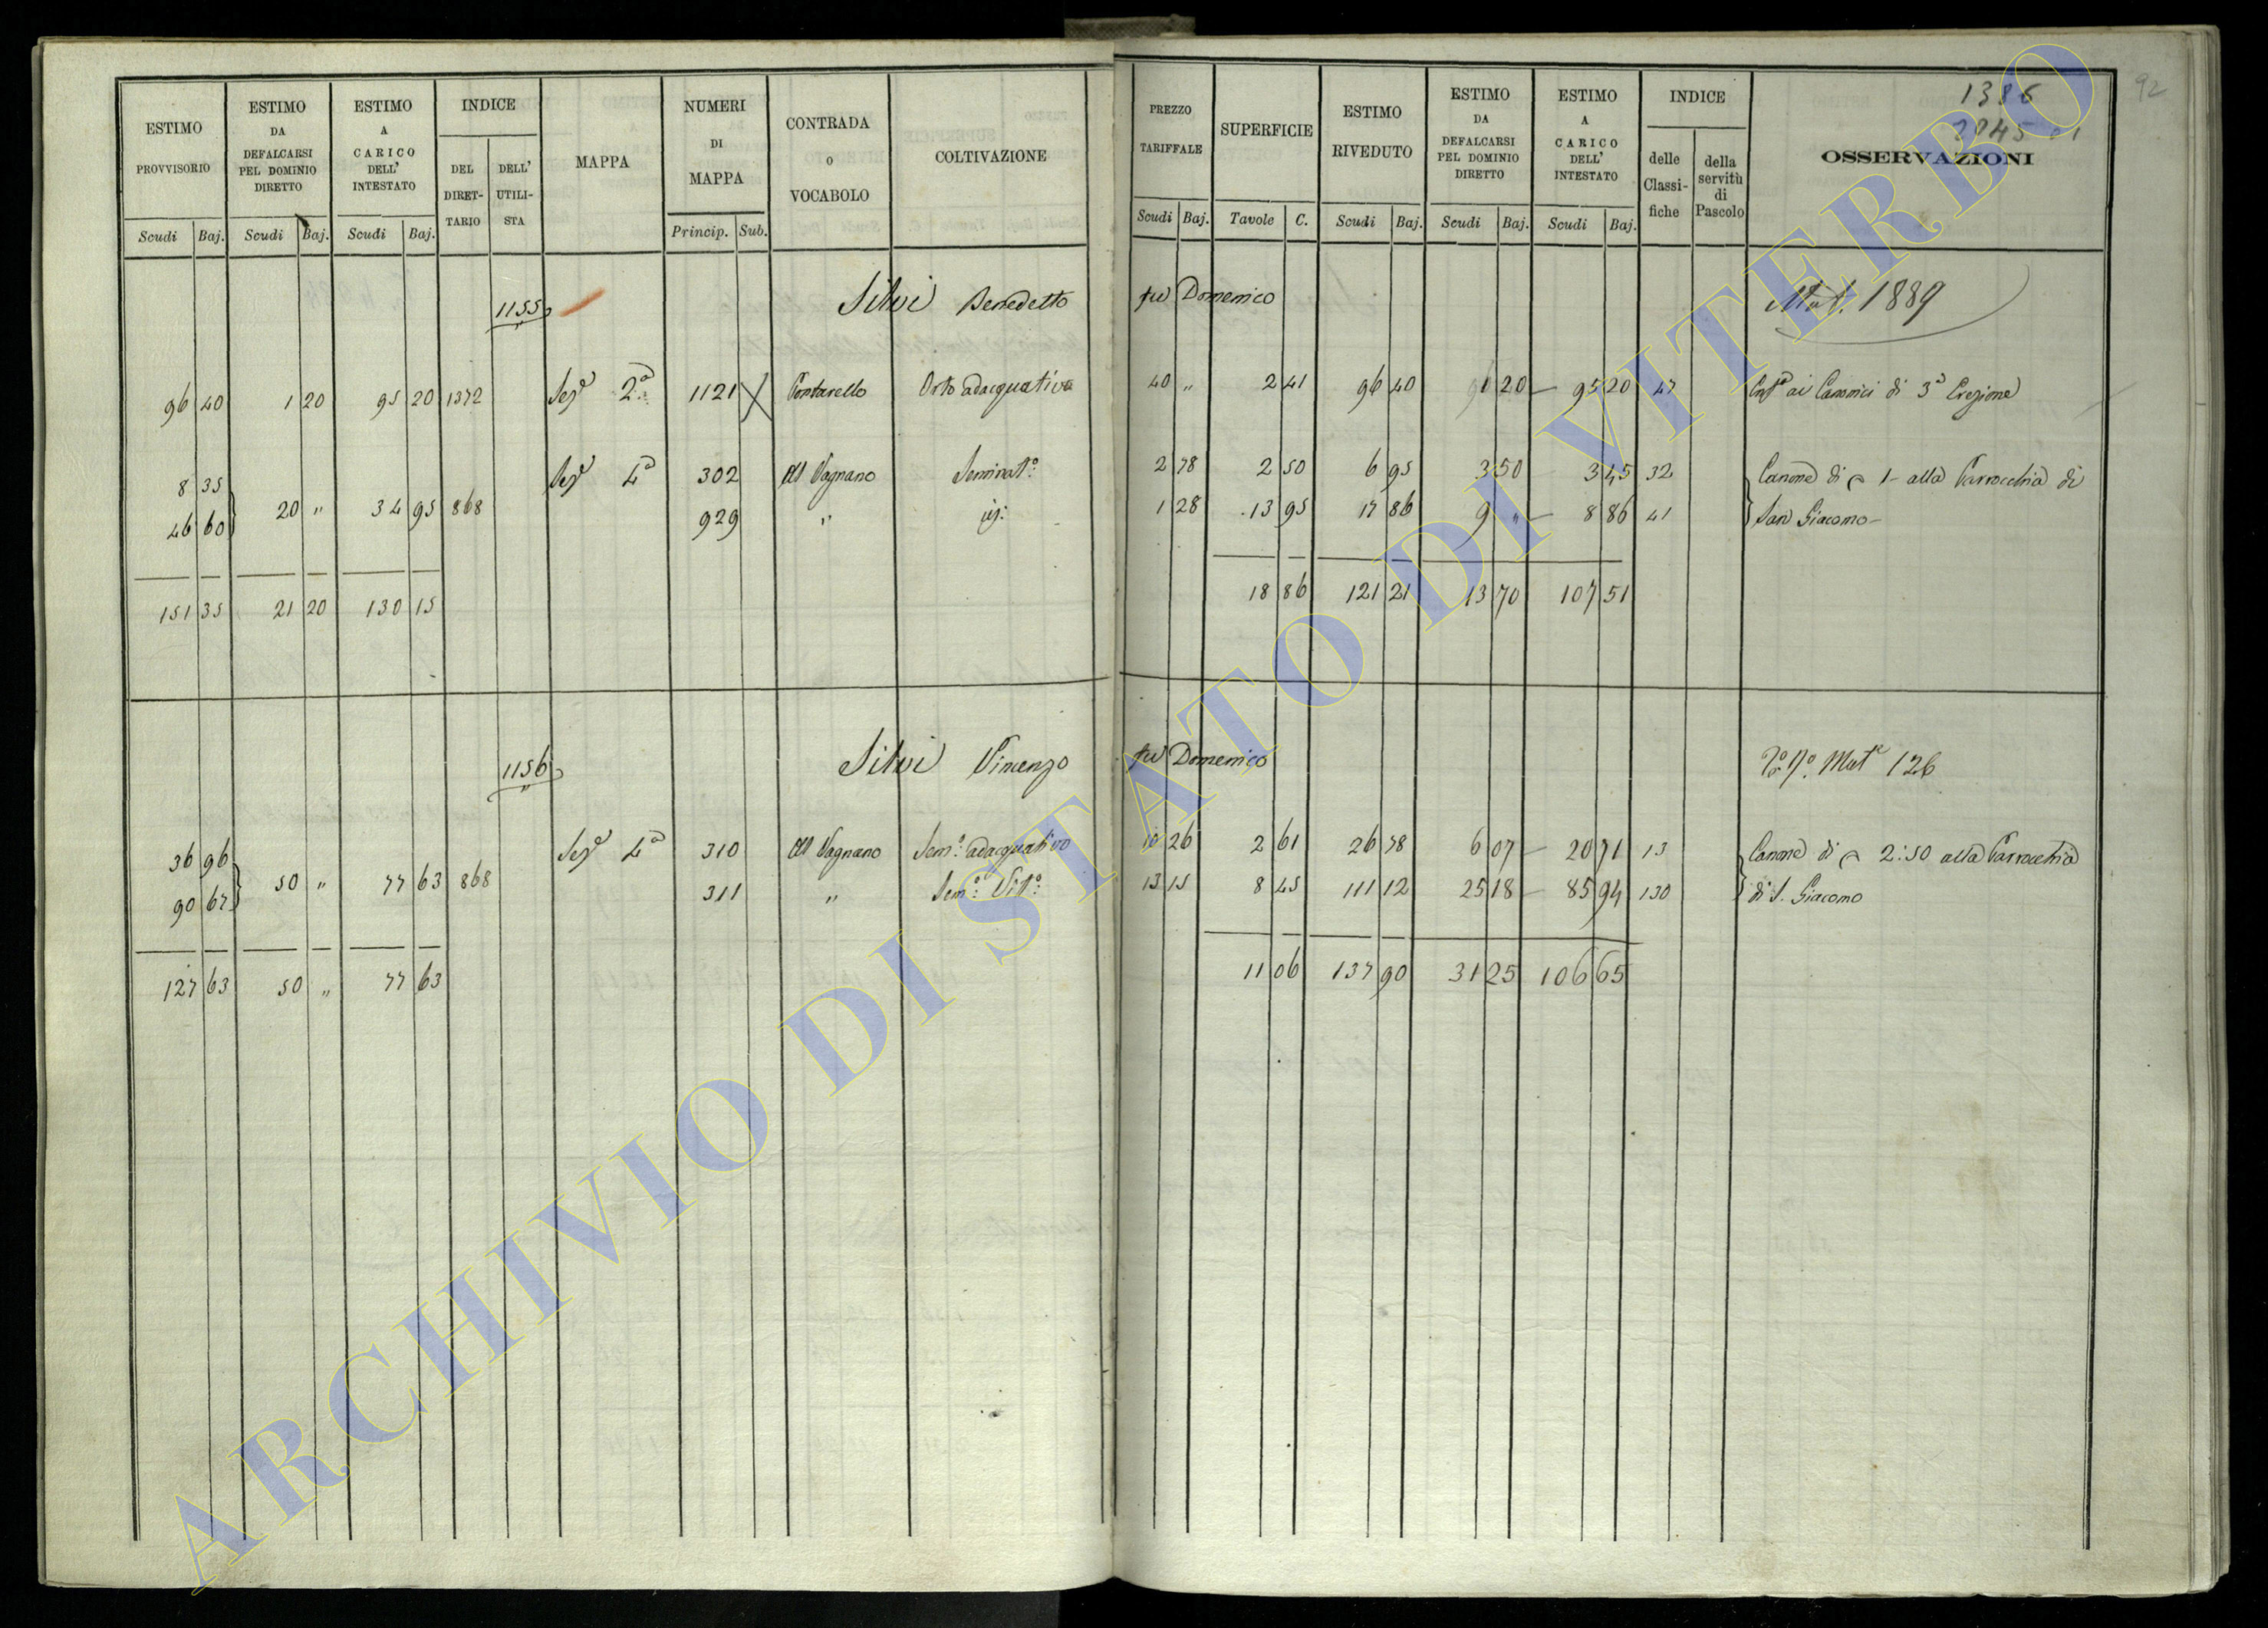 92
1386
ESTIMO PROVVISORIO
ESTIMO DA DEFALCARSI PEL DOMINIO DIRETTO
ESTIMO A CARICO DELL' INTESTATO
INDICE
DEL DIRET-TARIO
DELL' UTILI-STA
MAPPA
NUMERI DI MAPPA
CONTRADA O VOCABOLO
COLTIVAZIONE
PREZZO TARIFFALE
SUPERFICIE
ESTIMO RIVEDUTO
ESTIMO DA DEFALCARSI PEL DOMINIO DIRETTO
ESTIMO A CARICO DELL' INTESTATO
INDICE
delle Classi-fiche
della servitù di Pascolo
OSSERVAZIONI
Scudi Baj. Scudi Baj. Scudi Baj. Princip. Sub. Scudi Baj. Tavole C. Scudi Baj. Scudi Baj. Scudi Baj.
1155 Silvi Benedetto fu Domenico Mut. 1889
96 40 1 20 95 20 1372 Sez.e 2.a 1121 X Pontarello Orto adacquativo 40 " 2 41 96 40 1 20 95 20 47 ai Canonici di 3a Erezione
8 35 Sez.e 4a 302 Al Vagnano Seminat.o 2 78 2 50 6 95 3 50 3 45 32 Canone di 1- alla Parrocchia di
46 60 } 20 " 34 95 868 929 " 1 28 13 95 17 86 9 " 8 86 41 San Giacomo-
151 35 21 20 130 15 18 86 121 21 13 70 107 51
1156 Silvi Vincenzo fu Domenico Mut.e 126
36 96 Sez.e 4a 310 Al Vagnano Sem.o adacquativo 10 26 2 61 26 78 6 07 20 71 13 Canone di 2:50 alla Parrocchia
90 67 } 50 " 77 63 868 311 " Sem.o Vit.o 13 15 8 45 111 12 25 18 85 94 130 di S. Giacomo
127 63 50 " 77 63 11 06 137 90 31 25 106 65
ARCHIVIO DI STATO DI VITERBO